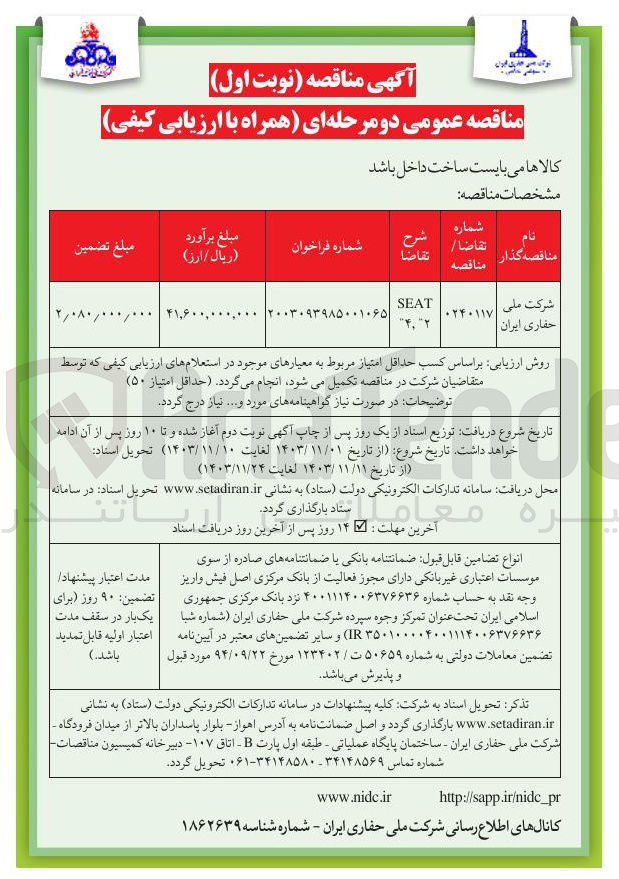 شرکت ملی حفاری ایران
« سهامی خاص »
آگهی مناقصه (نوبت اول)
مناقصه عمومی دومرحله‌ای (همراه با ارزیابی کیفی)
کالاها می‌بایست ساخت داخل باشد
مشخصات مناقصه:
نام مناقصه‌گذار
شماره تقاضا / مناقصه
شرح تقاضا
شماره فراخوان
مبلغ برآورد (ریال/ارز)
مبلغ تضمین
شرکت ملی حفاری ایران
۰۲۴۰۱۱۷
SEAT ۲", ۴"
۲۰۰۳۰۹۳۹۸۵۰۰۱۰۶۵
۴۱,۶۰۰,۰۰۰,۰۰۰
۲/۰۸۰/۰۰۰/۰۰۰
روش ارزیابی: براساس کسب حداقل امتیاز مربوط به معیارهای موجود در استعلام‌های ارزیابی کیفی که توسط
متقاضیان شرکت در مناقصه تکمیل می شود، انجام می‌گردد. (حداقل امتیاز ۵۰)
توضیحات: در صورت نیاز گواهینامه‌های مورد و... نیاز درج گردد.
تاریخ شروع دریافت: توزیع اسناد از یک روز پس از چاپ آگهی نوبت دوم آغاز شده و تا ۱۰ روز پس از آن ادامه
خواهد داشت. تاریخ شروع: (از تاریخ ۱۴۰۳/۱۱/۰۱ لغایت ۱۴۰۳/۱۱/۱۰) تحویل اسناد:
(از تاریخ ۱۴۰۳/۱۱/۱۱ لغایت ۱۴۰۳/۱۱/۲۴)
محل دریافت: سامانه تدارکات الکترونیکی دولت (ستاد) به نشانی www.setadiran.ir تحویل اسناد: در سامانه
ستاد بارگذاری گردد.
آخرین مهلت : ☑ ۱۴ روز پس از آخرین روز دریافت اسناد
انواع تضامین قابل‌قبول: ضمانتنامه بانکی یا ضمانتنامه‌های صادره از سوی
موسسات اعتباری غیربانکی دارای مجوز فعالیت از بانک مرکزی اصل فیش واریز
وجه نقد به حساب شماره ۴۰۰۱۱۱۴۰۰۶۳۷۶۶۳۶ نزد بانک مرکزی جمهوری
اسلامی ایران تحت‌عنوان تمرکز وجوه سپرده شرکت ملی حفاری ایران (شماره شبا
IR ۳۵۰۱۰۰۰۰۴۰۰۱۱۱۴۰۰۶۳۷۶۶۳۶) و سایر تضمین‌های معتبر در آیین‌نامه
تضمین معاملات دولتی به شماره ۵۰۶۵۹ ت / ۱۲۳۴۰۲ مورخ ۹۴/۰۹/۲۲ مورد قبول
و پذیرش می‌باشد.
مدت اعتبار پیشنهاد/
تضمین: ۹۰ روز (برای
یک‌بار در سقف مدت
اعتبار اولیه قابل‌تمدید
باشد.)
تذکر: تحویل اسناد به شرکت: کلیه پیشنهادات در سامانه تدارکات الکترونیکی دولت (ستاد) به نشانی
www.setadiran.ir بارگذاری گردد و اصل ضمانت‌نامه به آدرس اهواز- بلوار پاسداران بالاتر از میدان فرودگاه -
شرکت ملی حفاری ایران - ساختمان پایگاه عملیاتی - طبقه اول پارت B - اتاق ۱۰۷- دبیرخانه کمیسیون مناقصات-
شماره تماس ۳۴۱۴۸۵۶۹ - ۳۴۱۴۸۵۸۰-۰۶۱ تحویل گردد.
www.nidc.ir http://sapp.ir/nidc_pr
کانال‌های اطلاع‌رسانی شرکت ملی حفاری ایران - شماره شناسه ۱۸۶۲۶۳۹